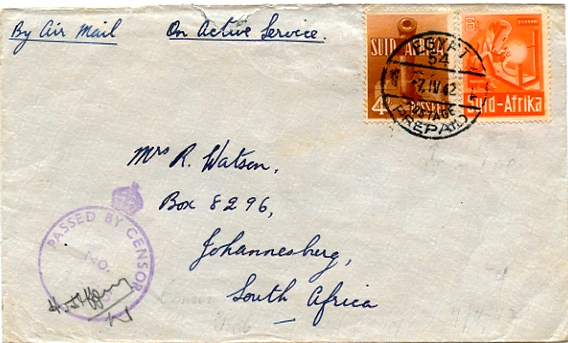 By Air Mail
On Active Service.
SUID AFRICA
4
Suid-Afrika
EGYPT
54
7.IV.42
POSTAGE
PREPAID
Mrs R. Watson,
Box 8296,
Johannesberg,
South Africa
PASSED BY CENSOR
No.